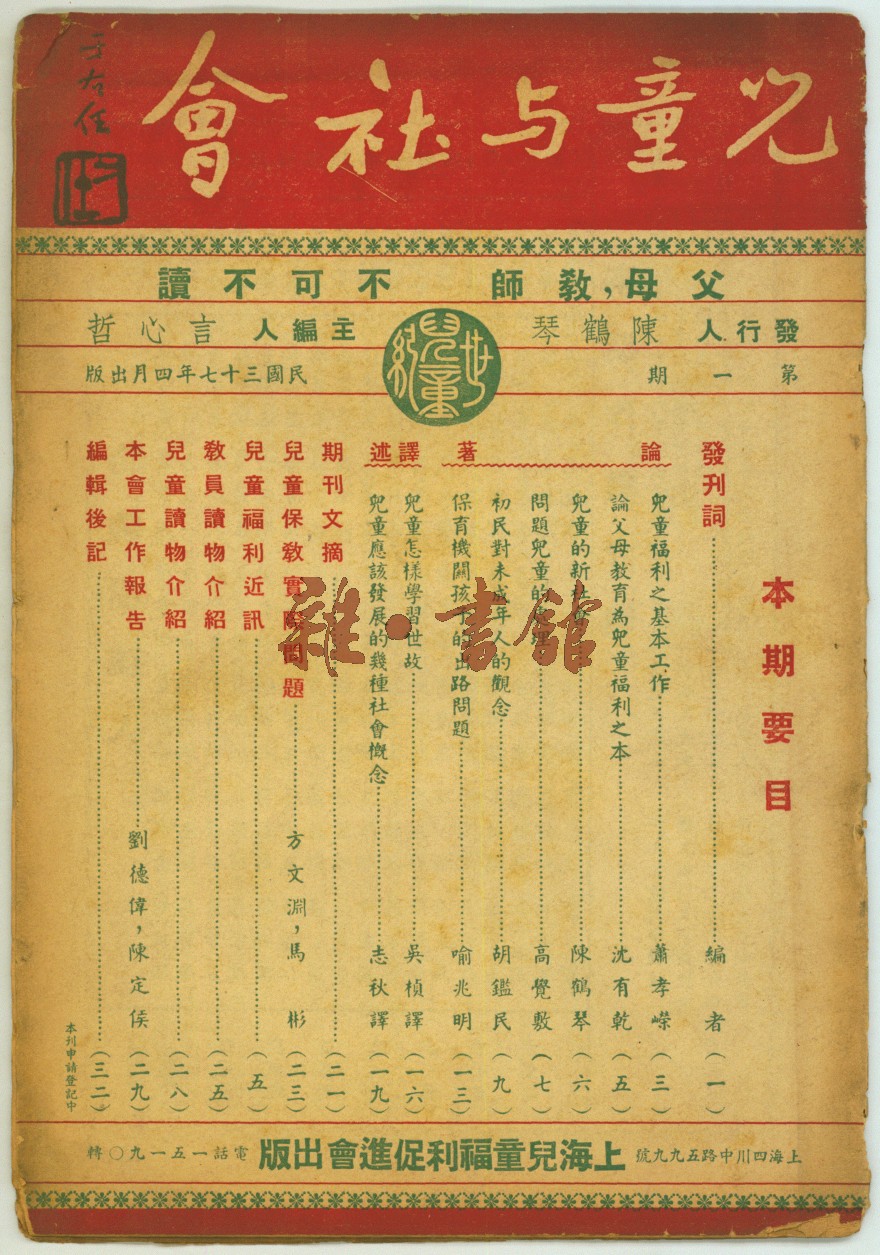 兒童与社會
于右任
父母,教師 不可不讀
發行人 陳鶴琴
主編人 言心哲
兒童世紀
第一期
民國三十七年四月出版
本期要目
發刊詞 編者(一)
論著
兒童福利之基本工作 蕭孝嶸(三)
論父母教育為兒童福利之本 沈有乾(五)
兒童的新社 陳鶴琴(六)
問題兒童的處理 高覺敷(七)
初民對未成年人的觀念 胡鑑民(九)
保育機關孩子的出路問題 喻兆明(一三)
譯述
兒童怎樣學習世故 吳楨譯(一六)
兒童應該發展的幾種社會概念 志秋譯(一九)
期刊文摘(二一)
兒童保教實際問題 方文淵,馬彬(二三)
兒童福利近訊(五)
教員讀物介紹(二五)
兒童讀物介紹(二八)
本會工作報告 劉德偉,陳定侯(二九)
編輯後記(三二)
本刊申請登記中
上海四川中路五九九號
上海兒童福利促進會出版
電話一五一九〇轉
雜·書館